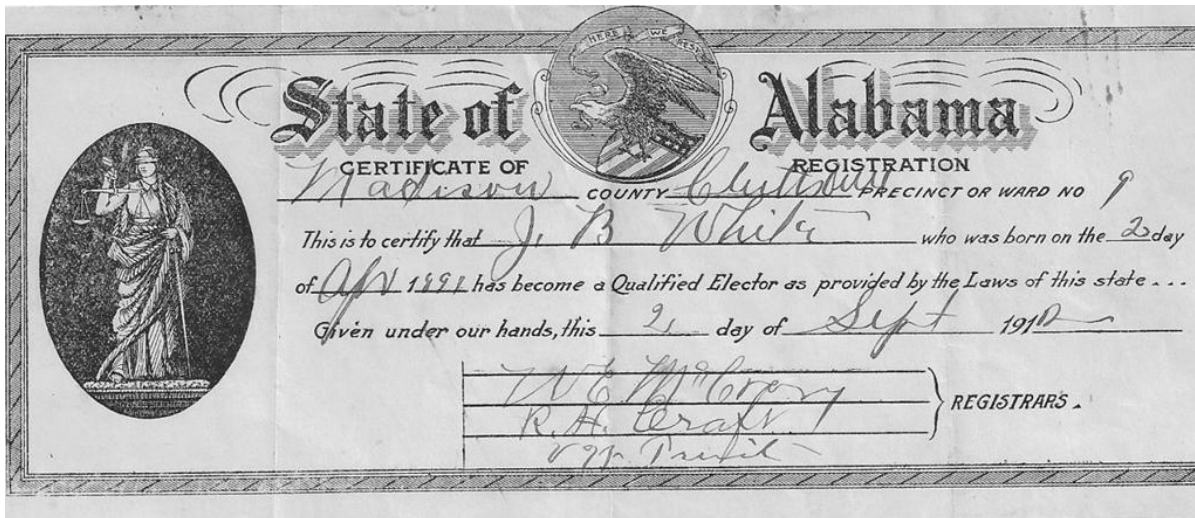 HERE WE REST
State of Alabama
CERTIFICATE OF REGISTRATION
Madison COUNTY PRECINCT OR WARD NO 9
This is to certify that J. B White who was born on the 2 day
of Apr 1891 has become a Qualified Elector as provided by the Laws of this state ...
Given under our hands, this 2 day of Sept 1912
W E McCrary
R. H. Craft
REGISTRARS.